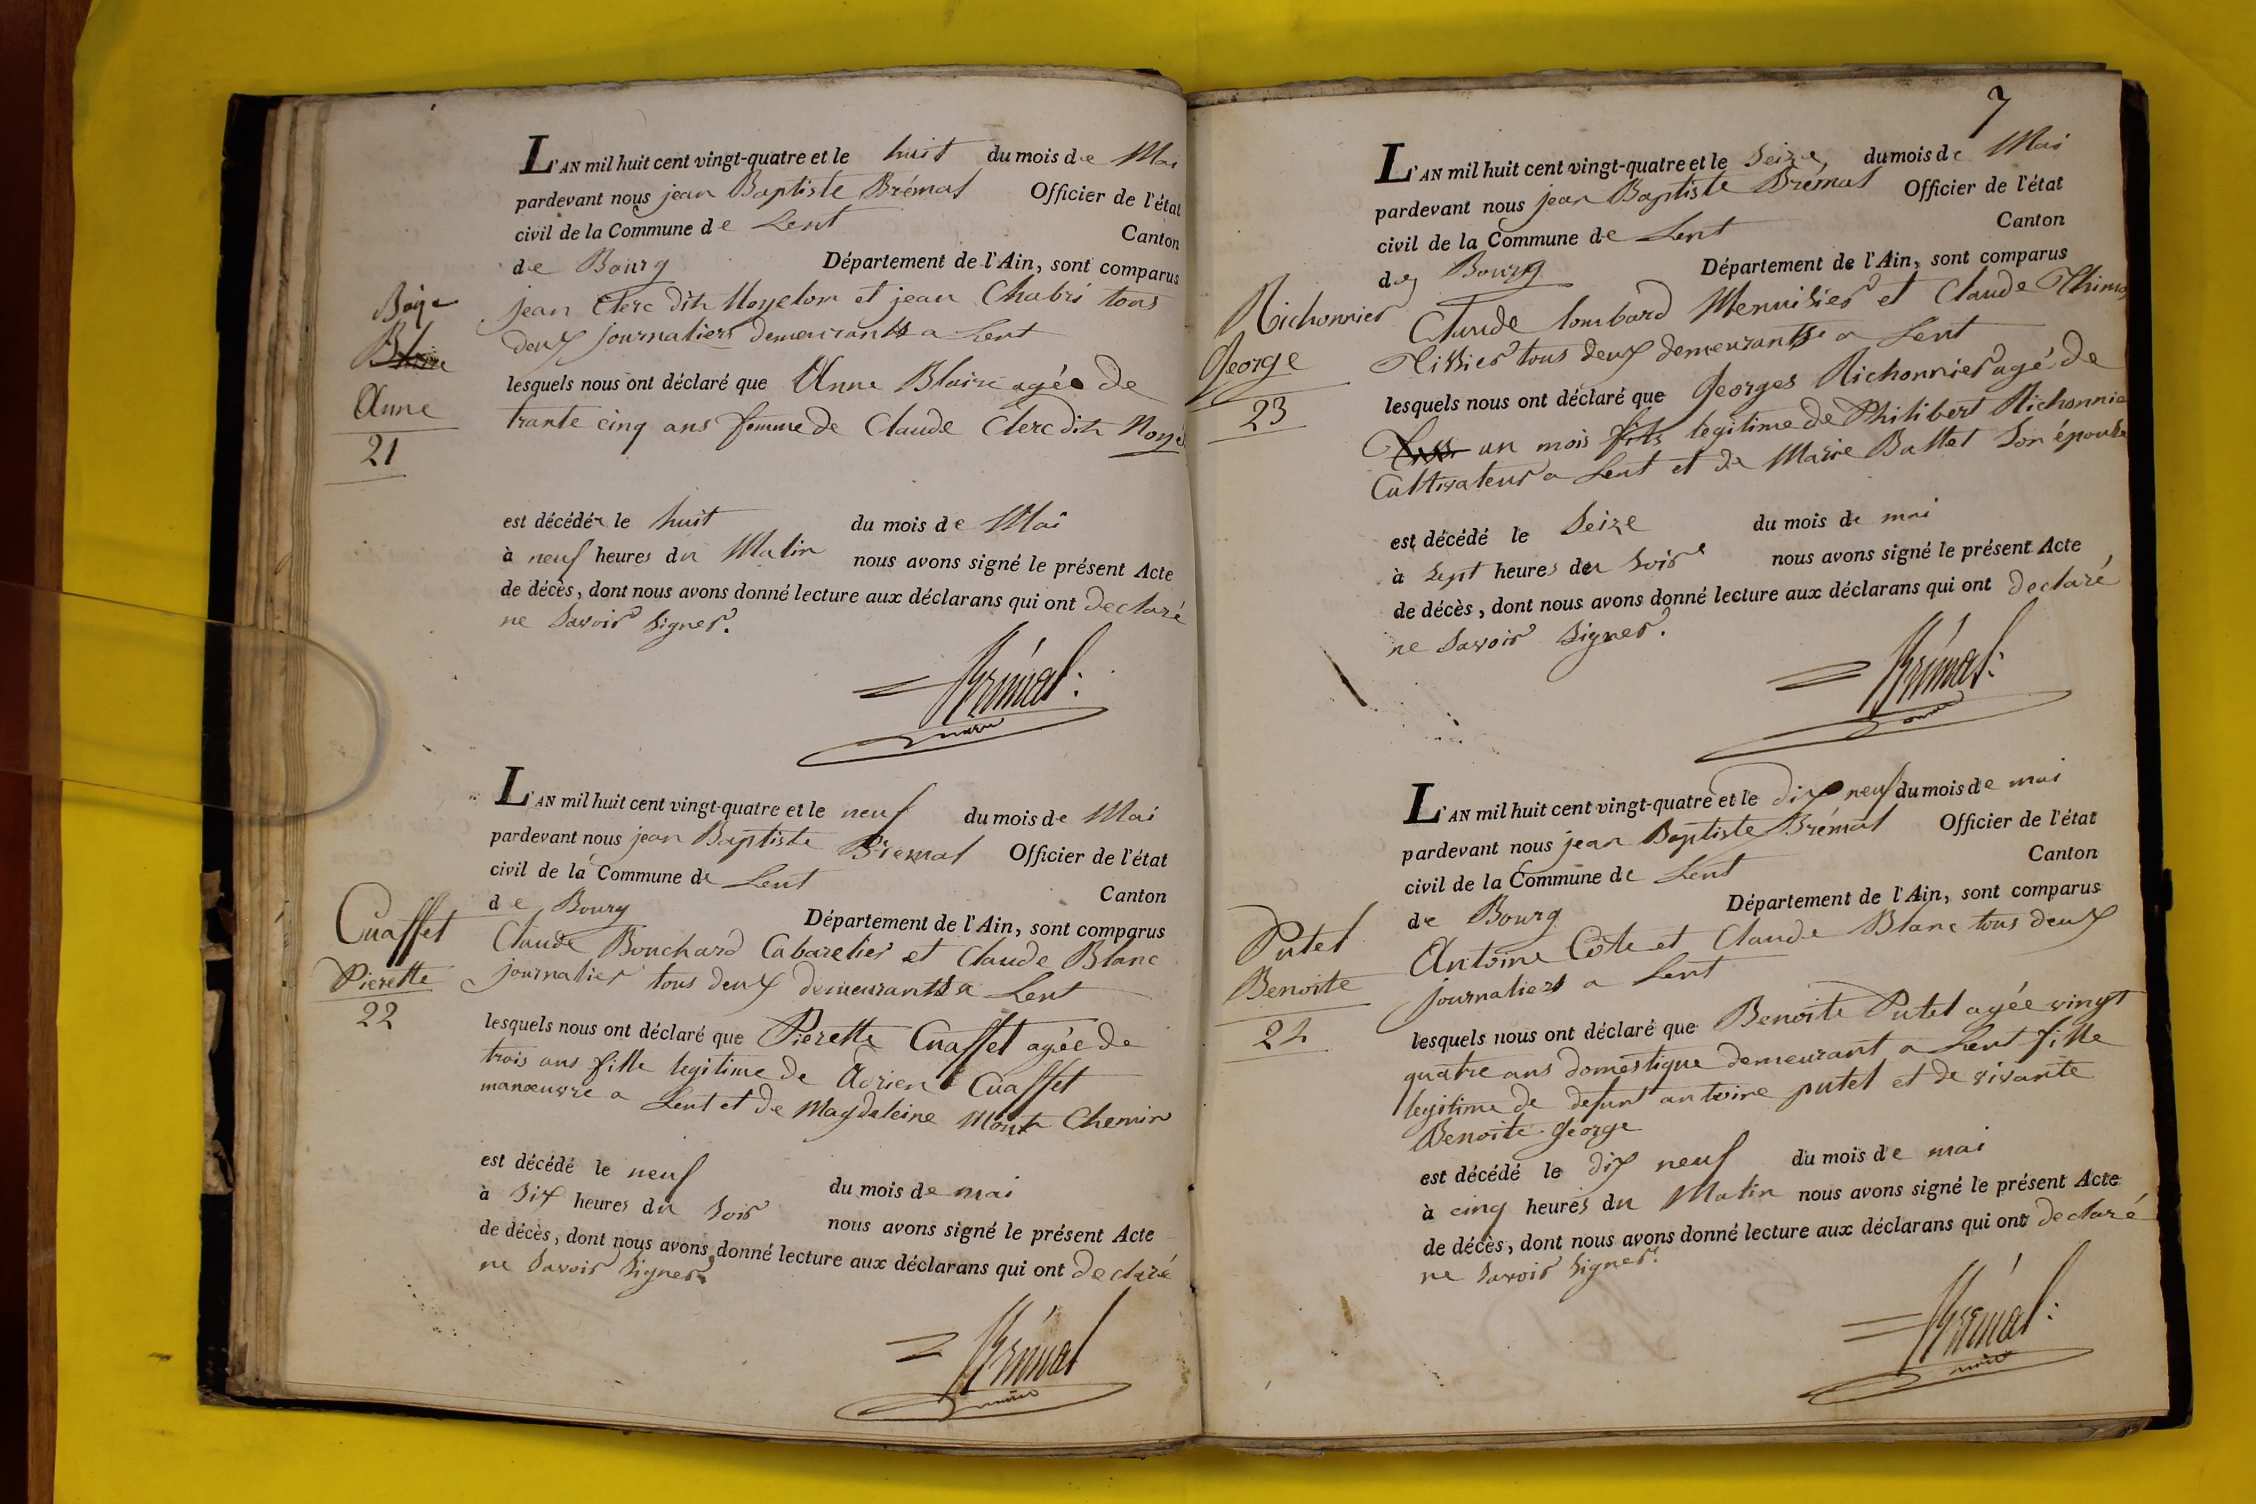 L'AN mil huit cent vingt-quatre et le huit du mois de Mai
pardevant nous jean Baptiste Brémal Officier de l'état
civil de la Commune de Lent Canton
de Bourg Département de l'Ain, sont comparus
jean Clerc dit et jean Chabri tous
deux journaliers demeurants a Lent
lesquels nous ont déclaré que Anne Blaise agée de
trante cinq ans femme de Claude Clerc dit
Anne
21
est décédée le huit du mois de Mai
à neuf heures du Matin nous avons signé le présent Acte
de décès, dont nous avons donné lecture aux déclarans qui ont declaré
ne Savoir Signer.
Brémal
maire
L'AN mil huit cent vingt-quatre et le neuf du mois de Mai
pardevant nous jean Baptiste Brémal Officier de l'état
civil de la Commune de Lent Canton
de Bourg Département de l'Ain, sont comparus
Claude Bouchard Cabaretier et Claude Blanc
journalier tous deux demeurants a Lent
lesquels nous ont déclaré que Pierette Cuaffet agée de
trois ans fille legitime de Adrien Cuaffet
manœuvre a Lent et de Magdeleine Mont Chemin
Cuaffet
Pierette
22
est décédé le neuf du mois de mai
à Six heures du Soir nous avons signé le présent Acte
de décès, dont nous avons donné lecture aux déclarans qui ont declaré
ne Savoir Signer
Brémal
maire
7
L'AN mil huit cent vingt-quatre et le Seize du mois de Mai
pardevant nous jean Baptiste Brémal Officier de l'état
civil de la Commune de Lent Canton
de Bourg Département de l'Ain, sont comparus
Claude lombard Menuisier et Claude
tissier tous deux demeurants a Lent
lesquels nous ont déclaré que Georges Richonnier agé de
un mois fils legitime de Philibert Richonnier
Cultivateur a Lent et de Marie Battet Son épouse
Richonnier
George
23
est décédé le Seize du mois de mai
à Sept heures du Soir nous avons signé le présent Acte
de décès, dont nous avons donné lecture aux déclarans qui ont declaré
ne Savoir Signer.
Brémal
maire
L'AN mil huit cent vingt-quatre et le dix neuf du mois de mai
pardevant nous jean Baptiste Brémal Officier de l'état
civil de la Commune de Lent Canton
de Bourg Département de l'Ain, sont comparus
Antoine Côte et Claude Blanc tous deux
journaliers a Lent
lesquels nous ont déclaré que Benoite Putet agée vingt
quatre ans domestique demeurant a Lent fille
legitime de defunt antoine putet et de vivante
Benoite George
Putet
Benoite
24
est décédé le dix neuf du mois de mai
à cinq heures du Matin nous avons signé le présent Acte
de décès, dont nous avons donné lecture aux déclarans qui ont declaré
ne Savoir Signer.
Brémal
maire